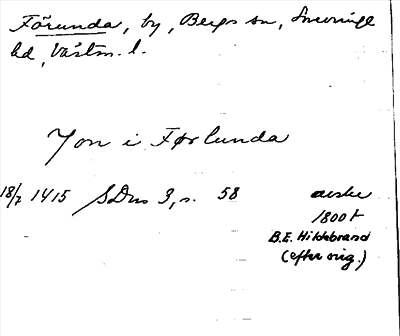 Förunda, by, Bergs sn, Snevringe
hd, Västm. l.
Jon i Førlunda
18/7 1415 SDns 3, s. 58 avskr
1800t
B.E. Hildebrand
(efter orig.)